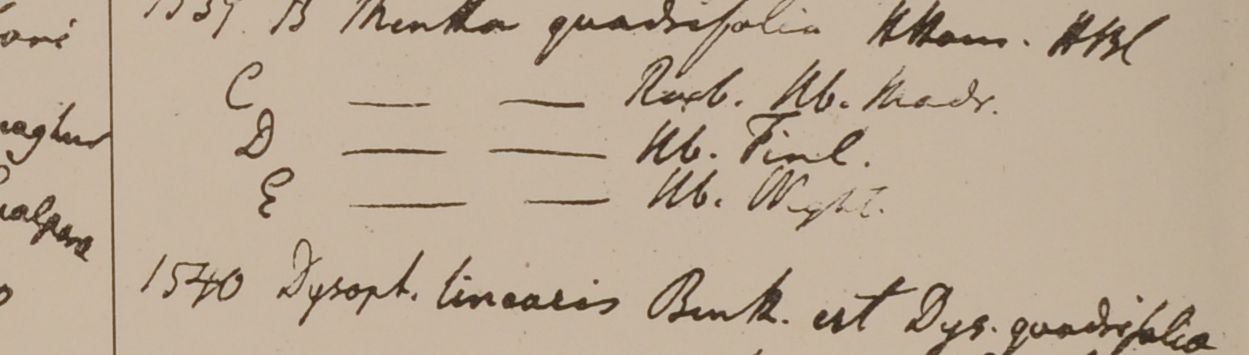 oni
aghur
alpara
1539. B Mentha quadrifolia HHam. HBC
C — — Roxb. Hb. Madr.
D — — Hb. Finl.
E — — Hb. Wight.
1540 Dysoph. linearis Benth. est Dys. quadrifolia